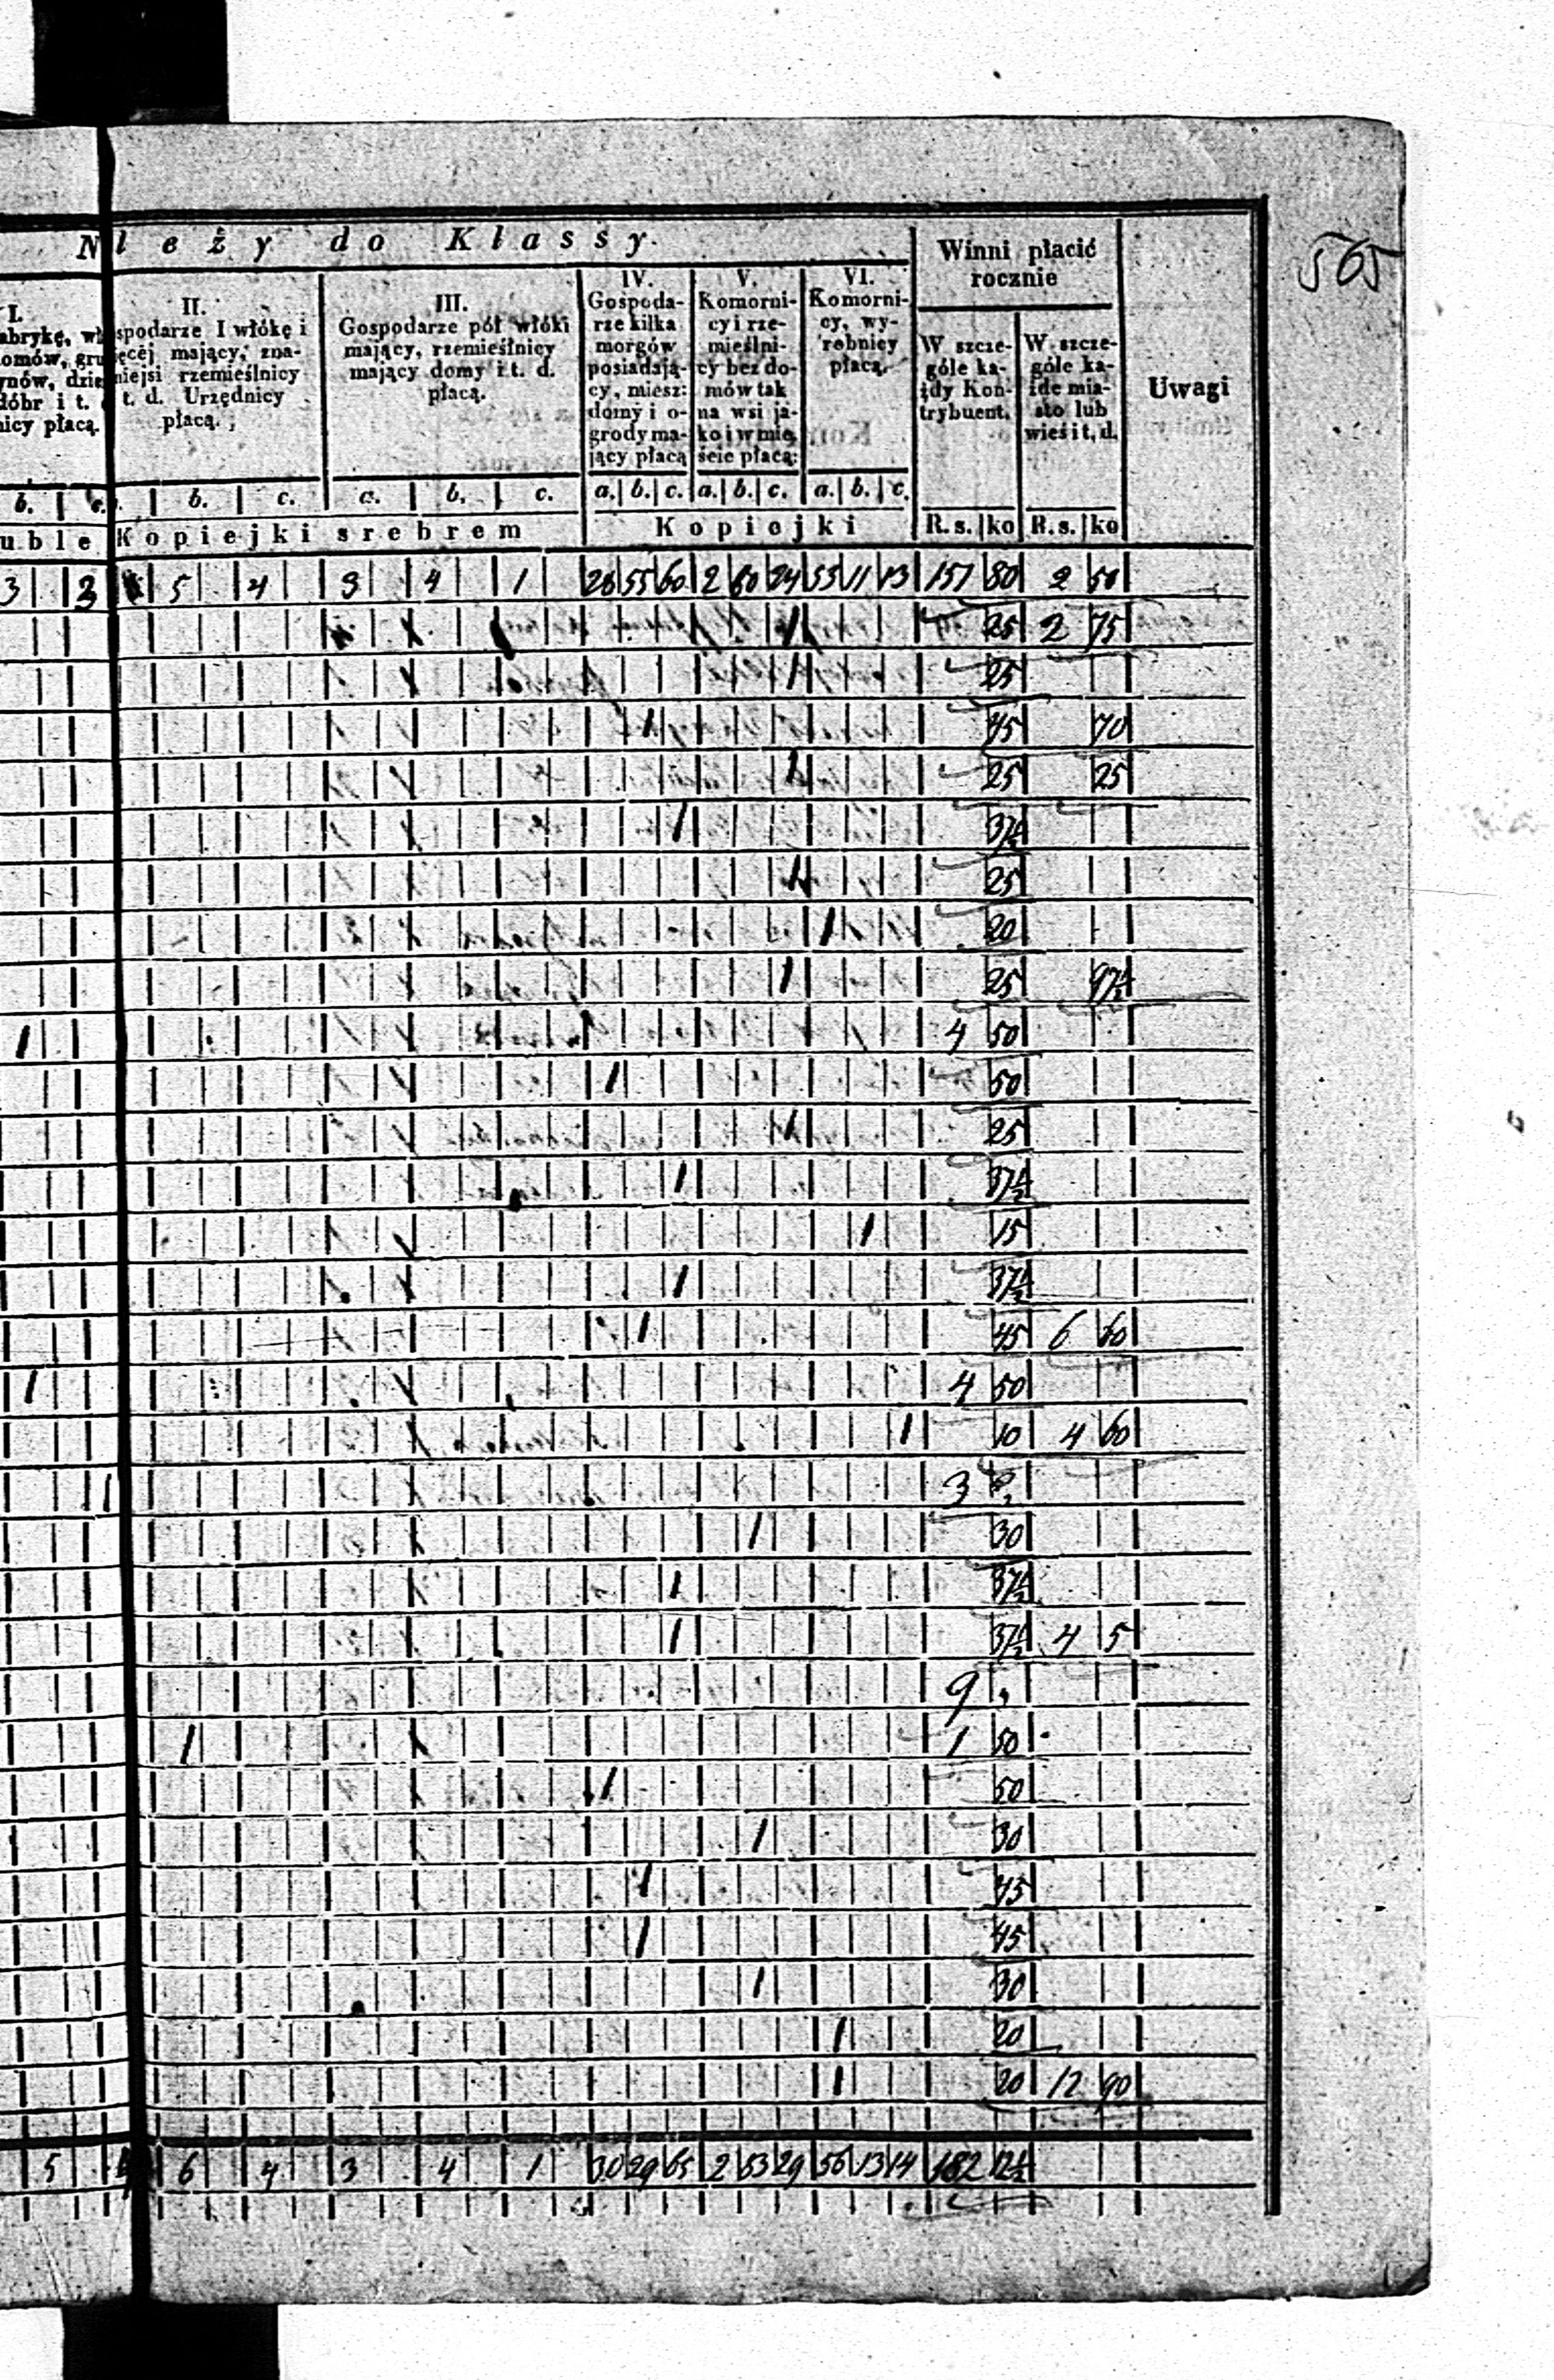 565
N leży do Klassy.
Winni płacić rocznie
Uwagi
I.
abrykę, wł
omów, gru
ynów, dzie
dóbr i t.
nicy płacą.
II.
spodarze I włókę i
ęcéj mający, zna-
niejsi rzemieślnicy
t. d. Urzędnicy
płacą.
III.
Gospodarze pół włóki
mający, rzemieślnicy
mający domy i t. d.
płacą.
IV.
Gospoda-
rze kilka
morgów
posiadają-
cy, miesz:
domy i o-
grody ma-
jący płacą
V.
Komorni-
cy i rze-
mieślni-
cy bez do-
mów tak
na wsi ja-
ko i w mie
ście płacą:
VI.
Komorni-
cy, wy-
robnicy
płacą.
W szcze-
góle ka-
żdy Kon-
trybuent.
W szcze-
góle ka-
żde mia-
sto lub
wieś i t. d.
b. c. b. c. a. b. c. a. b. c. a. b. c. a. b. c.
uble Kopiejki srebrem Kopiejki R.s. ko R.s. ko
3 3 5 4 3 4 1 28 55 60 2 60 24 53 11 13 151 80 2 50
1 25 2 75
1 25
1 45 70
1 25 25
1 37½
1 25
1 20
1 25 97½
1 4 50
1 50
1 25
1 37½
1 15
1 37½
1 45 6 60
1 4 50
1 10 4 60
1 3
1 30
1 37½
1 37½ 4 5
9 "
1 1 50
1 50
1 30
1 45
1 45
1 30
1 20
1 20 12 90
5 6 4 3 4 1 30 29 65 2 63 29 56 13 14 182 12½